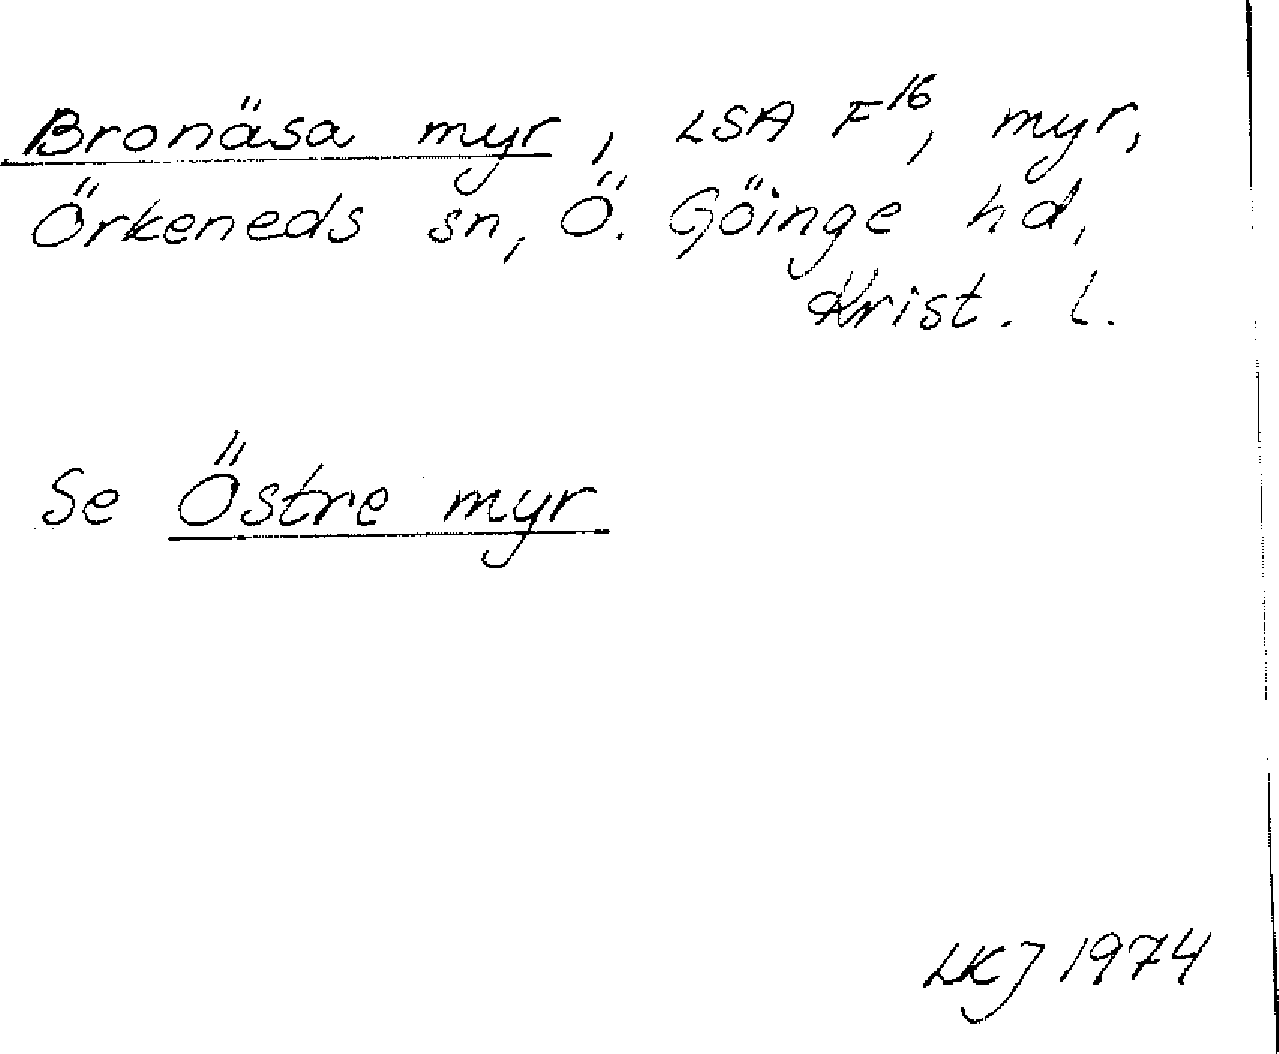 Bronäsa myr, LSA F16, myr,
Örkeneds sn, Ö. Göinge hd,
Krist. l.
Se Östre myr
LKJ 1974